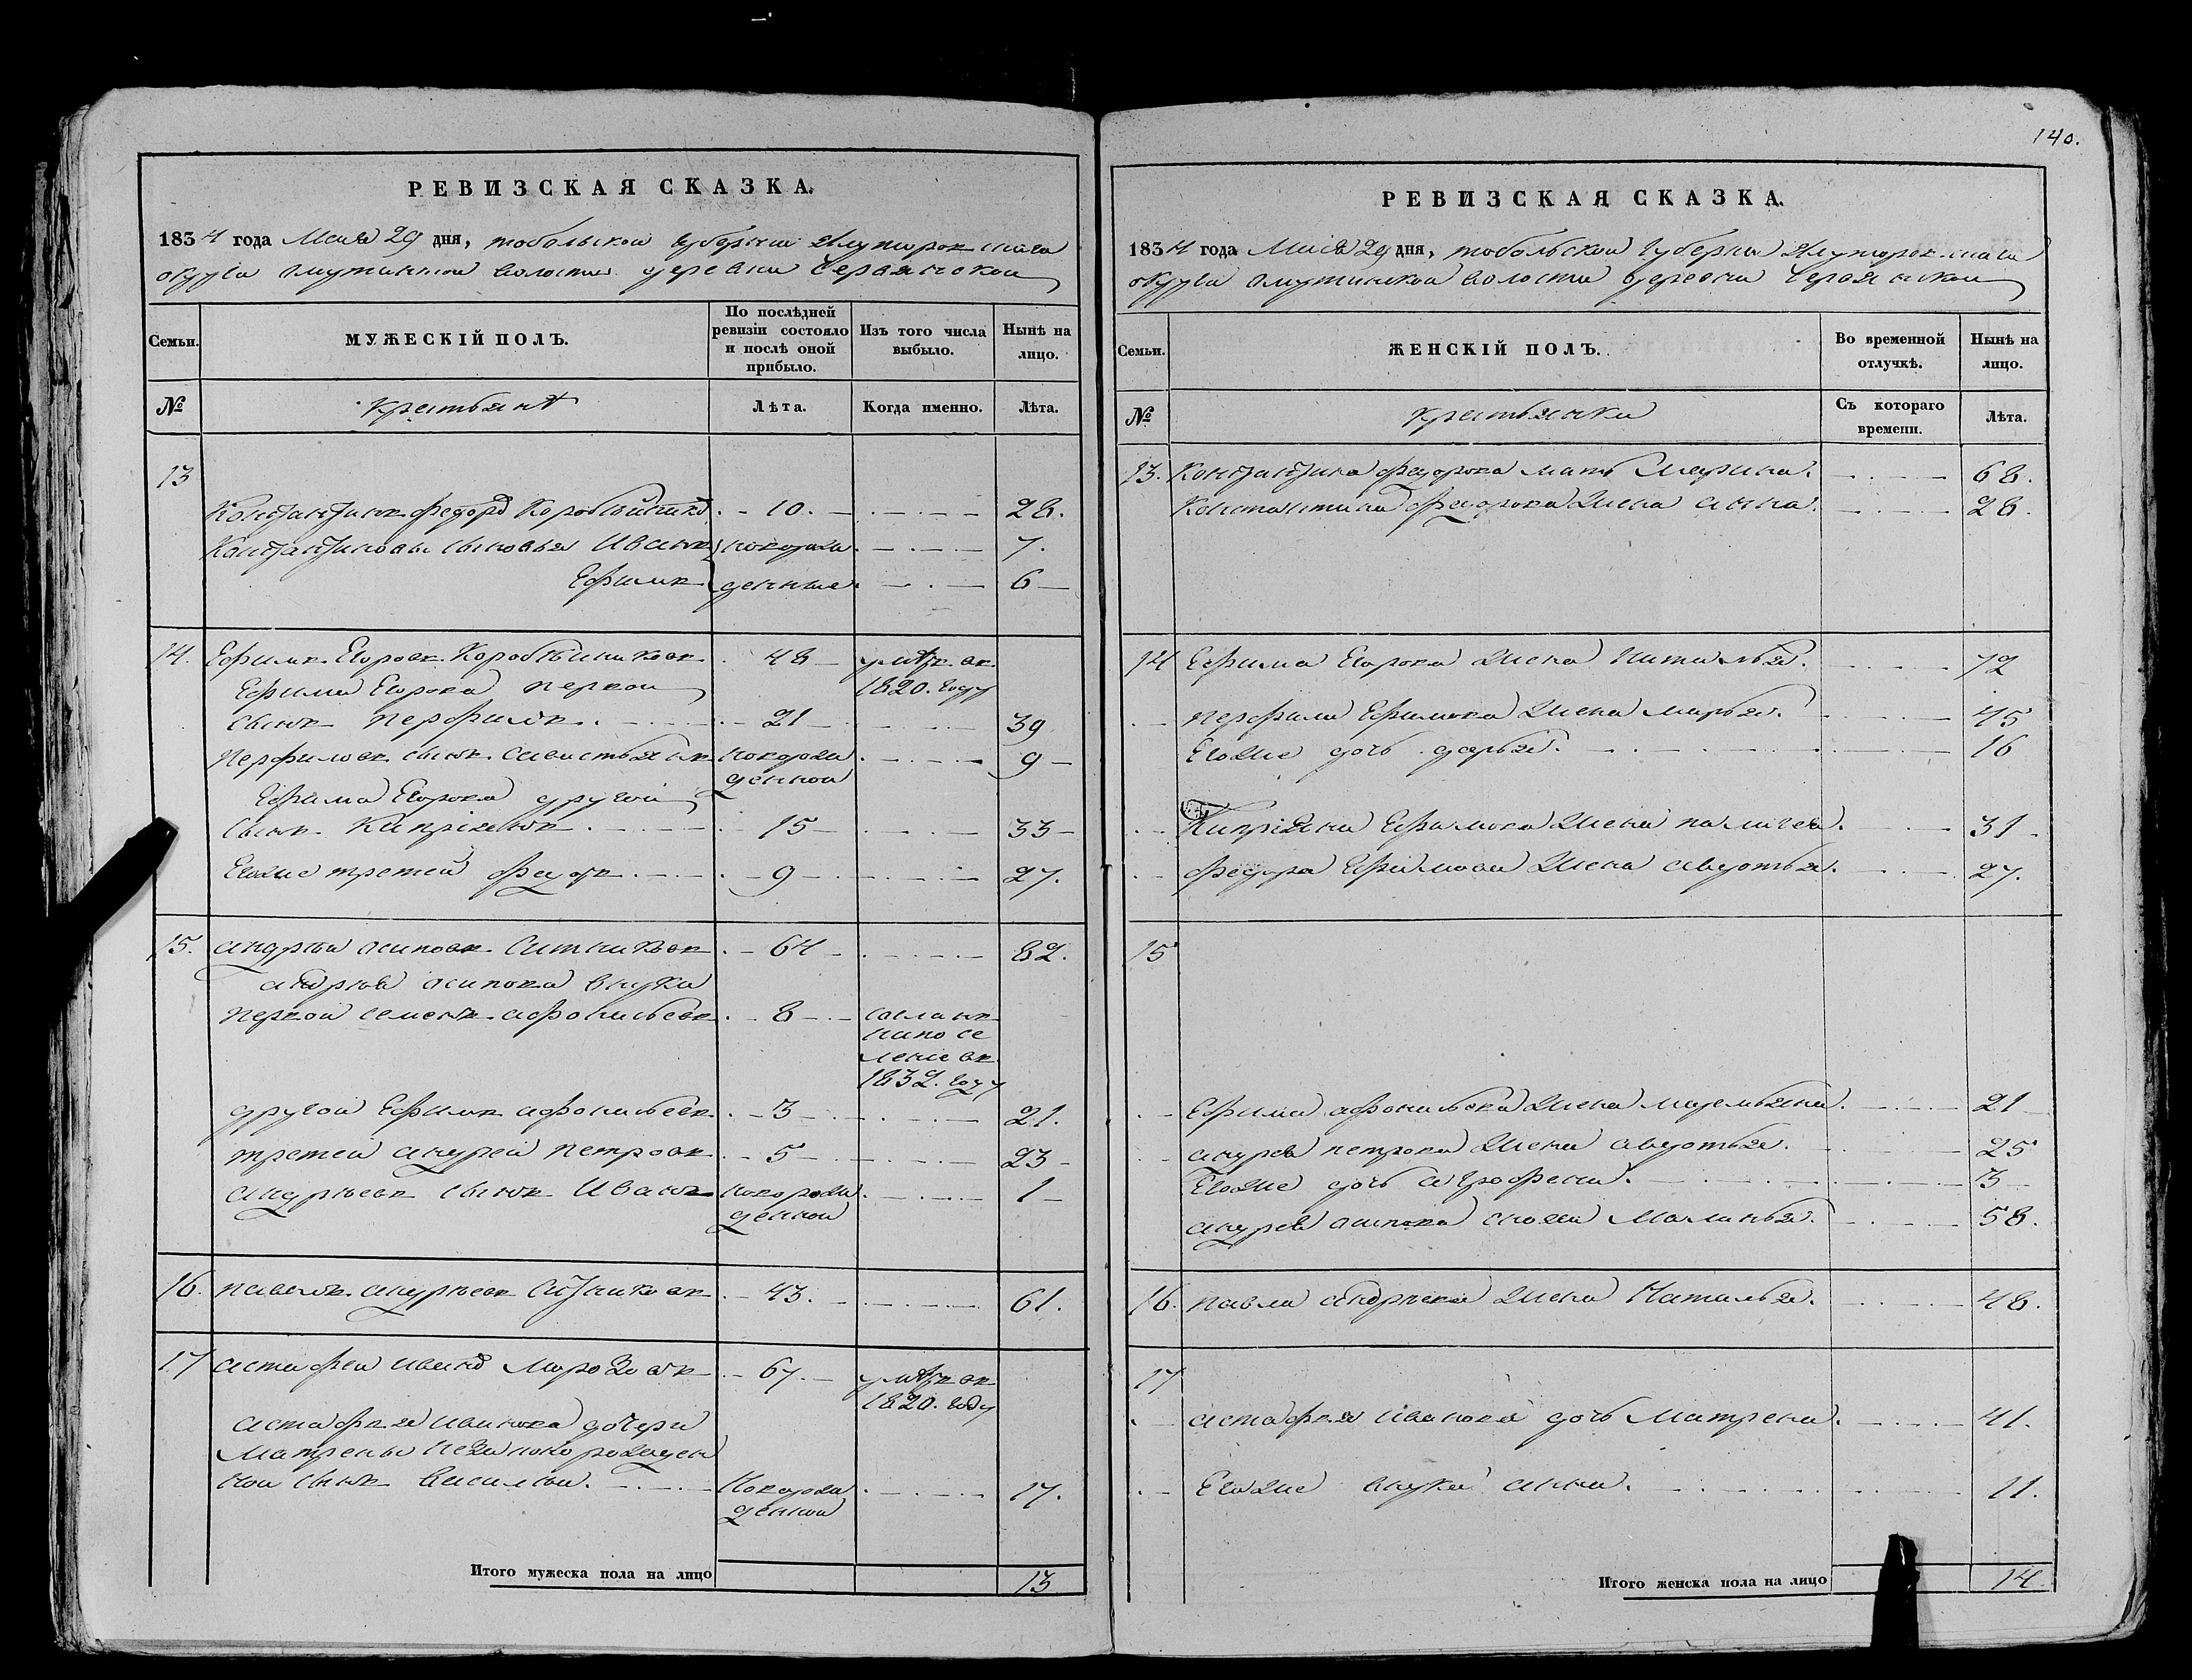 РЕВИЗСКАЯ СКАЗКА.
1834 года Маiя 29 дня, тобольской губернiи Ялуторовскаго
округа омутинской волости деревни
Семьи.
МУЖЕСКІЙ ПОЛЪ.
По послѣдней ревизіи состояло и послѣ оной прибыло.
Изъ того числа выбыло.
Нынѣ на лицо.
№
крестьянѣ
Лѣта.
Когда именно.
Лѣта.
13
Константинъ федоровъ Коробейниковъ 10. 28.
Константиновы сыновья Иванъ новорож 7.
Ефимъ денные 6
14. Ефимъ Егоровъ Коробейниковъ 48 умѣръ въ
Ефима Егорова первой 1820. году
сынъ перфилъ. 21 39
перфиловъ сынъ савастьянъ новорож 9
денной
Ефима Егорова другой
сынъ Кипріянъ. 15 33
Егоже третей федоръ 9 27.
15. андрѣй осиповъ Ситниковъ 64 82.
андрѣя осипова внуки
первой семенъ афонасьевъ 8 сосланъ
на посе
ленiе въ
1832. году
другой Ефимъ афонасьевъ 3 21.
третей андрей петровъ 5 23
андрѣевъ сынъ Иванъ новорож 1
денной
16. павелъ андрѣевъ Ситниковъ 43. 61.
17 астафей ивановъ Морозовъ 67. умѣръ въ
1820. году
астафья иванова дочери
матрены незаконо рожден
ной сынъ василей. Новорож 17.
денной
Итого мужеска пола на лицо 13
140.
РЕВИЗСКАЯ СКАЗКА.
1834 года Маiя 29 дня, тобольской губернiи Ялуторовскаго
округа омутинской волости деревни
Семьи.
ЖЕНСКІЙ ПОЛЪ.
Во временной отлучкѣ.
Нынѣ на лицо.
№
крестьянки
Съ котораго времени.
Лѣта.
13. Константина федорова мать Марина. 68.
Константина федорова жена анна. 28.
14 Ефима Егорова жена Наталья. 72
перфила Ефимова жена марья. 45
Егоже дочь дарья. 16
Кипріяна Ефимова жена палагея. 31
федора Ефимова жена авдотья. 27.
15
Ефима афонасьева жена 21
андрея петрова жена авдотья. 25
Егоже дочь аграфена. 3
андрея осипова сноха маланья. 58.
16. павла андрѣева жена Наталья. 48.
17
астафья иванова дочь матрена. 41.
Егоже внука анна. 11.
Итого женска пола на лицо 14